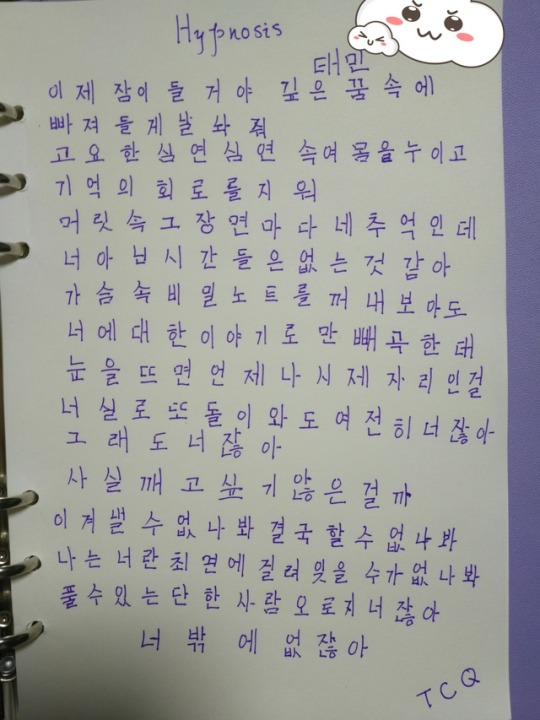 Hypnosis
태민
이 제 잠이 들 거야 깊 은 꿈 속 에
빠 져 들 게 날 놔 줘
고 요 한 심 연 심 연 속 여 몸 을 누 이 고
기 억 의 회 로 를 지 워
머 릿 속 그 장 면 마 다 네 추 억 인 데
너 아 닌 시 간 들 은 없 는 것 같 아
가 슴 속 비 밀 노 트 를 꺼 내 보 아 도
너 에 대 한 이 야 기 로 만 빼 곡 한 데
눈 을 뜨 면 언 제 나 시 제 자 리 인 걸
너 실 로 또 돌 이 와 도 여 전 히 너 잖 아
그 래 도 너 잖 아
사 실 깨 고 싶 기 않 은 걸 까
이 겨 낼 수 없 나 봐 결 국 할 수 없 나 봐
나 는 너 란 최 면 에 걸 려 잊 을 수 가 없 나 봐
풀 수 있 는 단 한 사 람 오 로 지 너 잖 아
너 밖 에 없 잖 아
TCQ